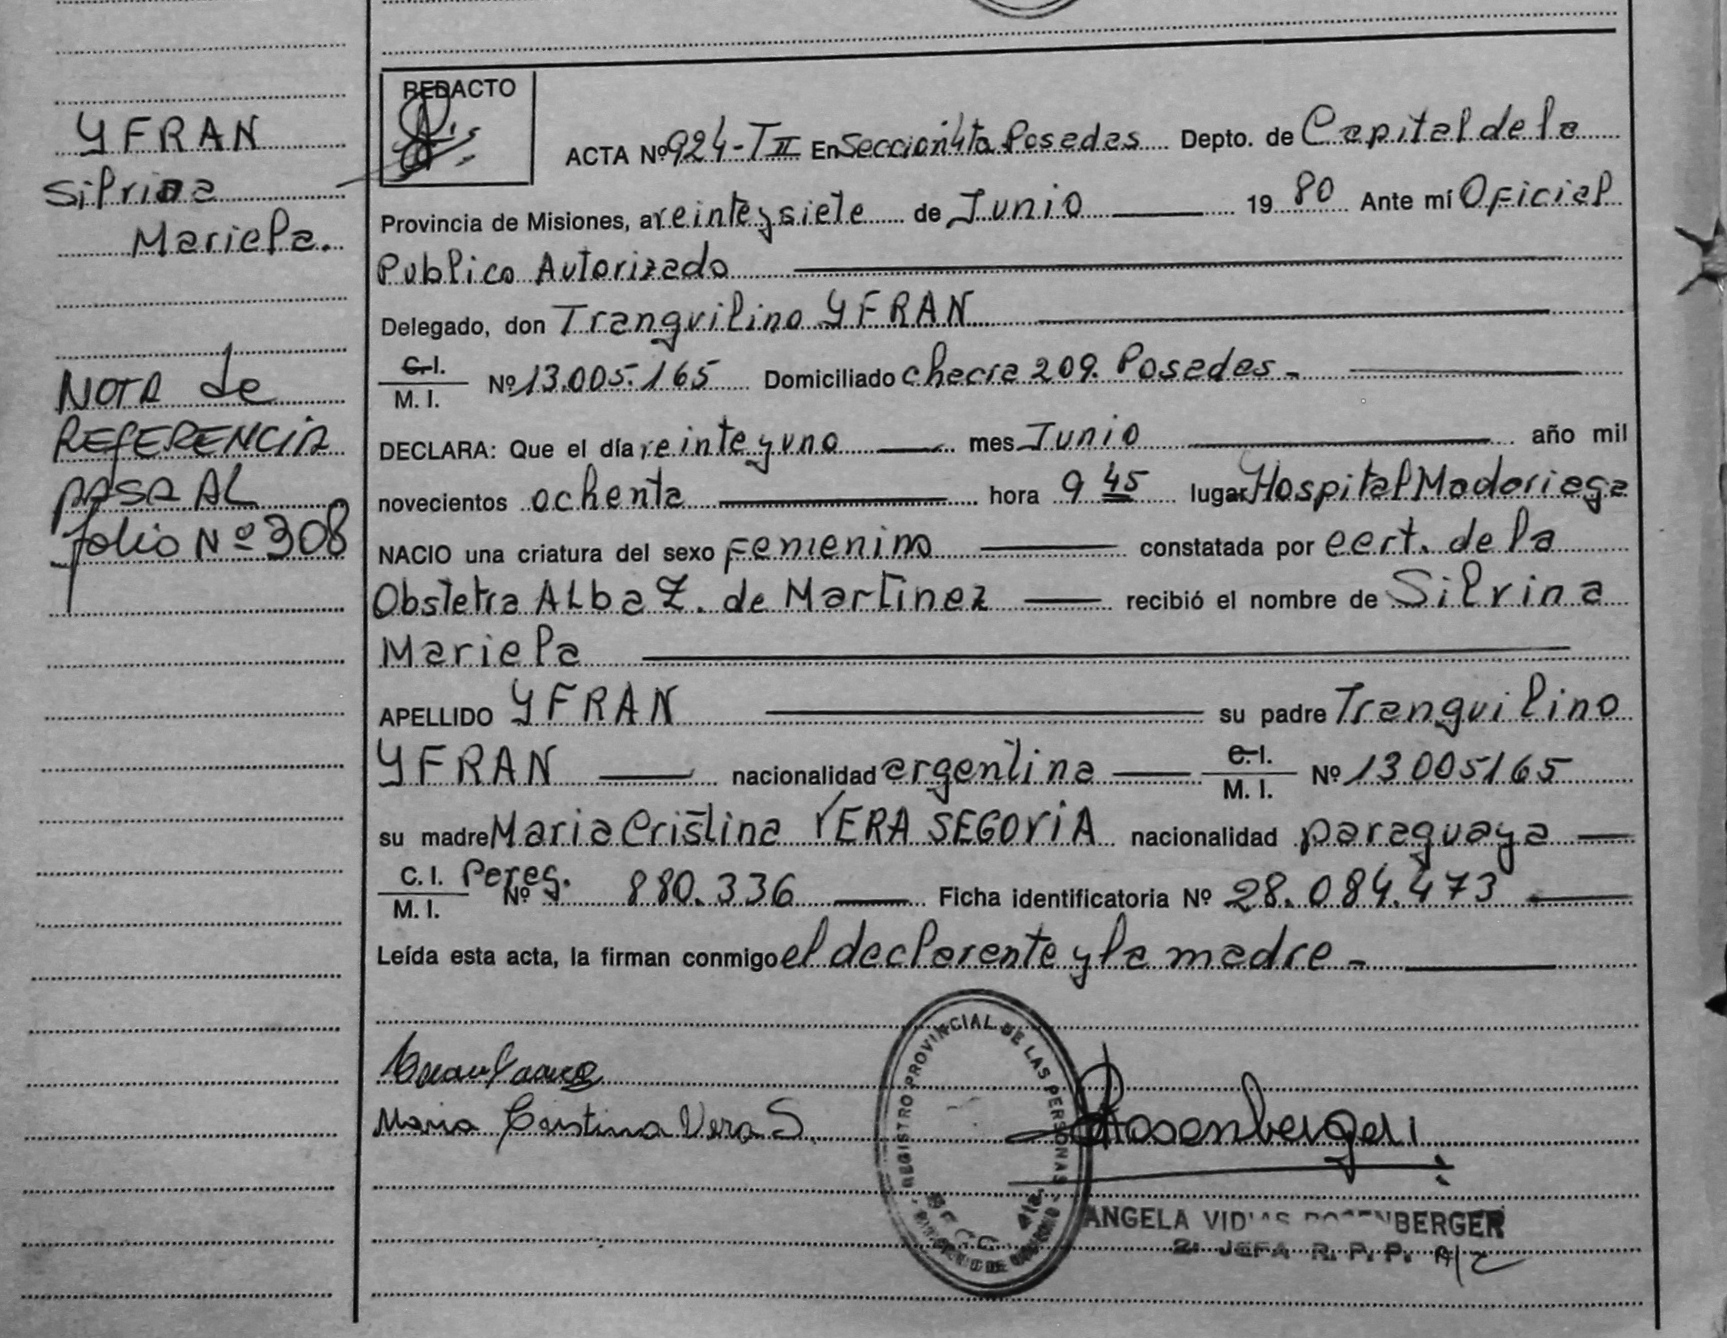 YFRAN
Silvina
Mariela.
NOTA de
REFERENCIA
PASA AL
folio Nº 308
REDACTO
ACTA Nº 924-T II En Sección 4ta Posadas Depto. de Capital de la
Provincia de Misiones, a veintey siete de Junio 19 80 Ante mí Oficial
Publico Autorizado
Delegado, don Tranquilino YFRAN
C. I.
M. I. Nº 13.005.165 Domiciliado chacra 209. Posadas -
DECLARA: Que el día veinteyuno mes Junio año mil
novecientos ochenta hora 9 45 lugar Hospital Madariaga
NACIO una criatura del sexo Femenino constatada por cert. de la
Obstetra Alba Z. de Martinez recibió el nombre de Silvina
Mariela
APELLIDO YFRAN su padre Tranquilino
YFRAN nacionalidad argentina C. I.
M. I. Nº 13005165
su madre Maria Cristina VERA SEGOVIA nacionalidad paraguaya
C. I.
M. I. Nº 880.336 Ficha identificatoria Nº 28.084.473
Leída esta acta, la firman conmigo el declarante y la madre -
Maria Cristina Vera S.
REGISTRO PROVINCIAL DE LAS PERSONAS
Rosenberger
ANGELA ROSENBERGER
2ª JEFA R. P. P. A/C